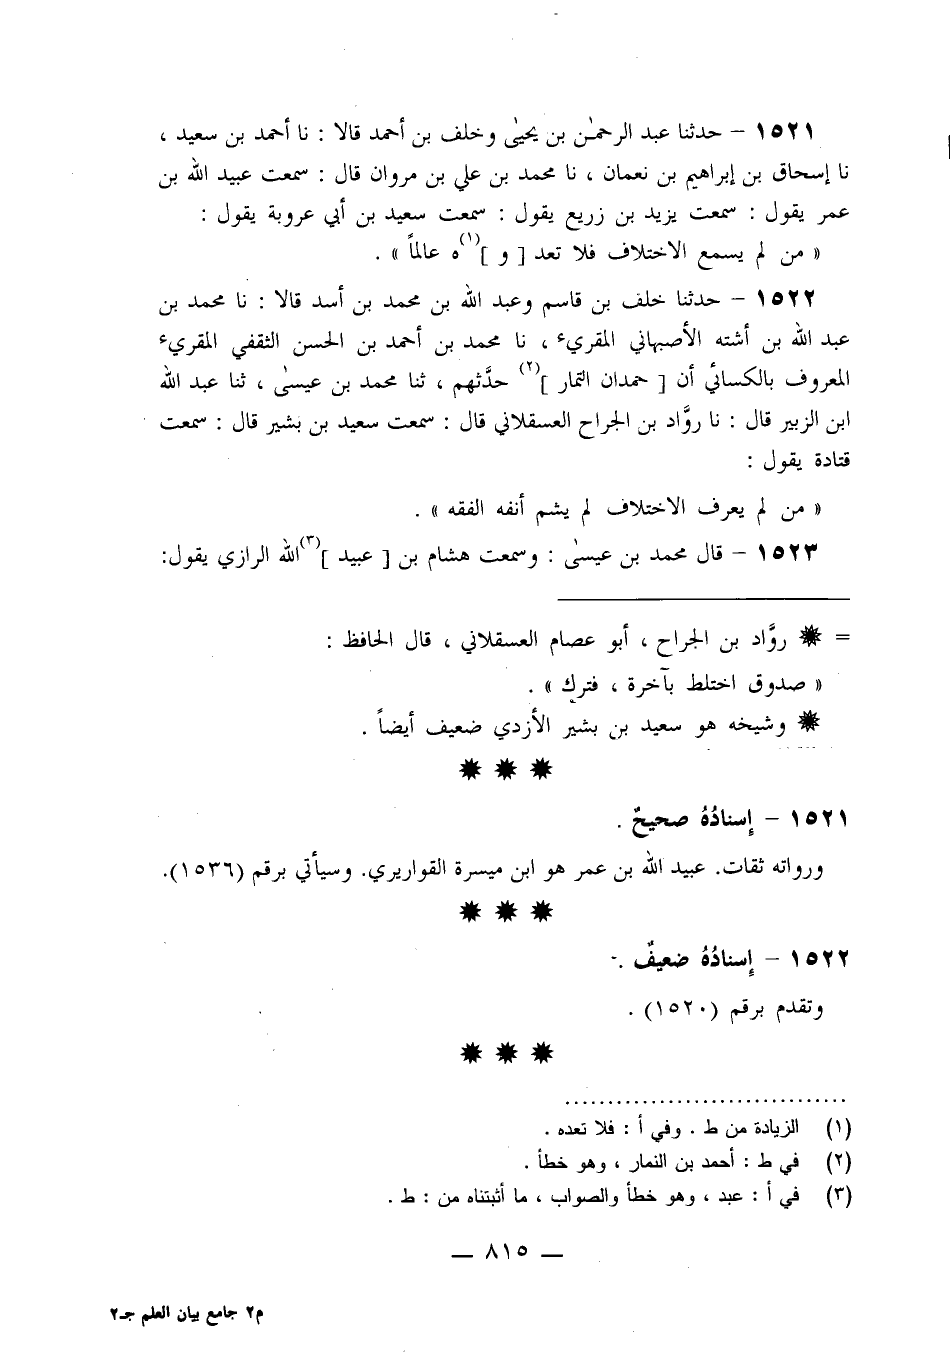 ١٥٢١ – حدثنا عبد الرحمٰن بن يحيىٰ وخلف بن أحمد قالا : نا أحمد بن سعيد ،
نا إسحاق بن إبراهيم بن نعمان ، نا محمد بن علي بن مروان قال : سمعت عبيد الله بن
عمر يقول : سمعت يزيد بن زريع يقول : سمعت سعيد بن أبي عروبة يقول :
« من لم يسمع الاختلاف فلا تعد [ و ](١)ه عالماً » .
١٥٢٢ – حدثنا خلف بن قاسم وعبد الله بن محمد بن أسد قالا : نا محمد بن
عبد الله بن أشته الأصبهاني المقريء ، نا محمد بن أحمد بن الحسن الثقفي المقريء
المعروف بالكسائي أن [ حمدان التمار ](٢) حدَّثهم ، ثنا محمد بن عيسىٰ ، ثنا عبد الله
ابن الزبير قال : نا روَّاد بن الجراح العسقلاني قال : سمعت سعيد بن بشير قال : سمعت
قتادة يقول :
« من لم يعرف الاختلاف لم يشم أنفه الفقه » .
١٥٢٣ – قال محمد بن عيسىٰ : وسمعت هشام بن [ عبيد ](٣)الله الرازي يقول:
= ✸ روَّاد بن الجراح ، أبو عصام العسقلاني ، قال الحافظ :
« صدوق اختلط بآخرة ، فترك » .
✸ وشيخه هو سعيد بن بشير الأزدي ضعيف أيضاً .
✸ ✸ ✸
١٥٢١ – إسنادُهُ صحيحٌ .
ورواته ثقات. عبيد الله بن عمر هو ابن ميسرة القواريري. وسيأتي برقم (١٥٣٦).
✸ ✸ ✸
١٥٢٢ – إسنادُهُ ضعيفٌ .
وتقدم برقم (١٥٢٠) .
✸ ✸ ✸
................................
(١) الزيادة من ط . وفي أ : فلا تعده .
(٢) في ط : أحمد بن النمار ، وهو خطأ .
(٣) في أ : عبد ، وهو خطأ والصواب ، ما أثبتناه من : ط .
— ٨١٥ —
م٢ جامع بيان العلم جـ٢